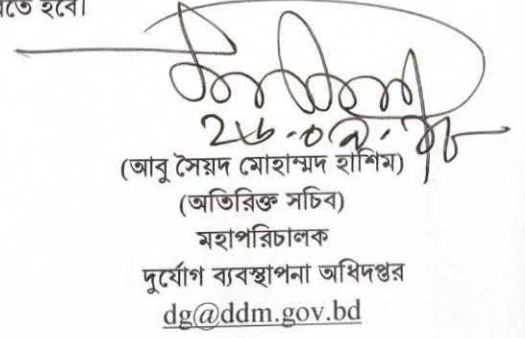 তে হবে।
(আবু সৈয়দ মোহাম্মদ হাশিম)
(অতিরিক্ত সচিব)
মহাপরিচালক
দুর্যোগ ব্যবস্থাপনা অধিদপ্তর
dg@ddm.gov.bd